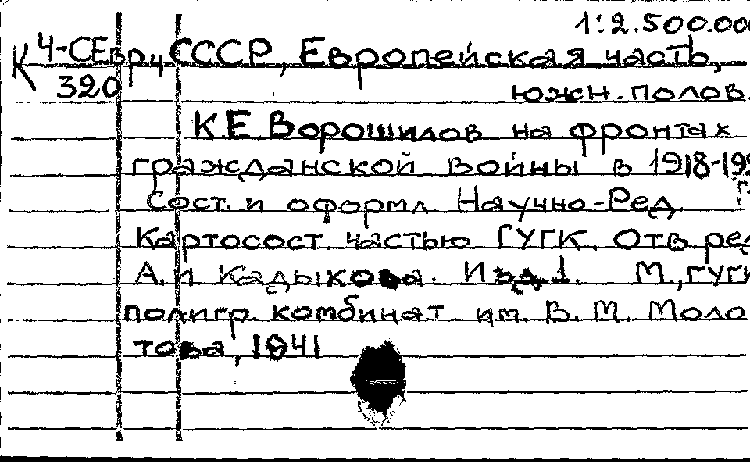 1:2.500.000
К 4-СЕвр.ч СССР, Европейская часть,
320
южн. полов.
К Е Ворошилов на фронтах
гражданской войны в 1918-19
Сост. и оформл Научно-Ред.
Картосост. частью ГУГК. Отв ред
А.и Кадыкова. Изд 1. М., ГУГК
полигр. комбинат им. В. М. Моло
това, 1941